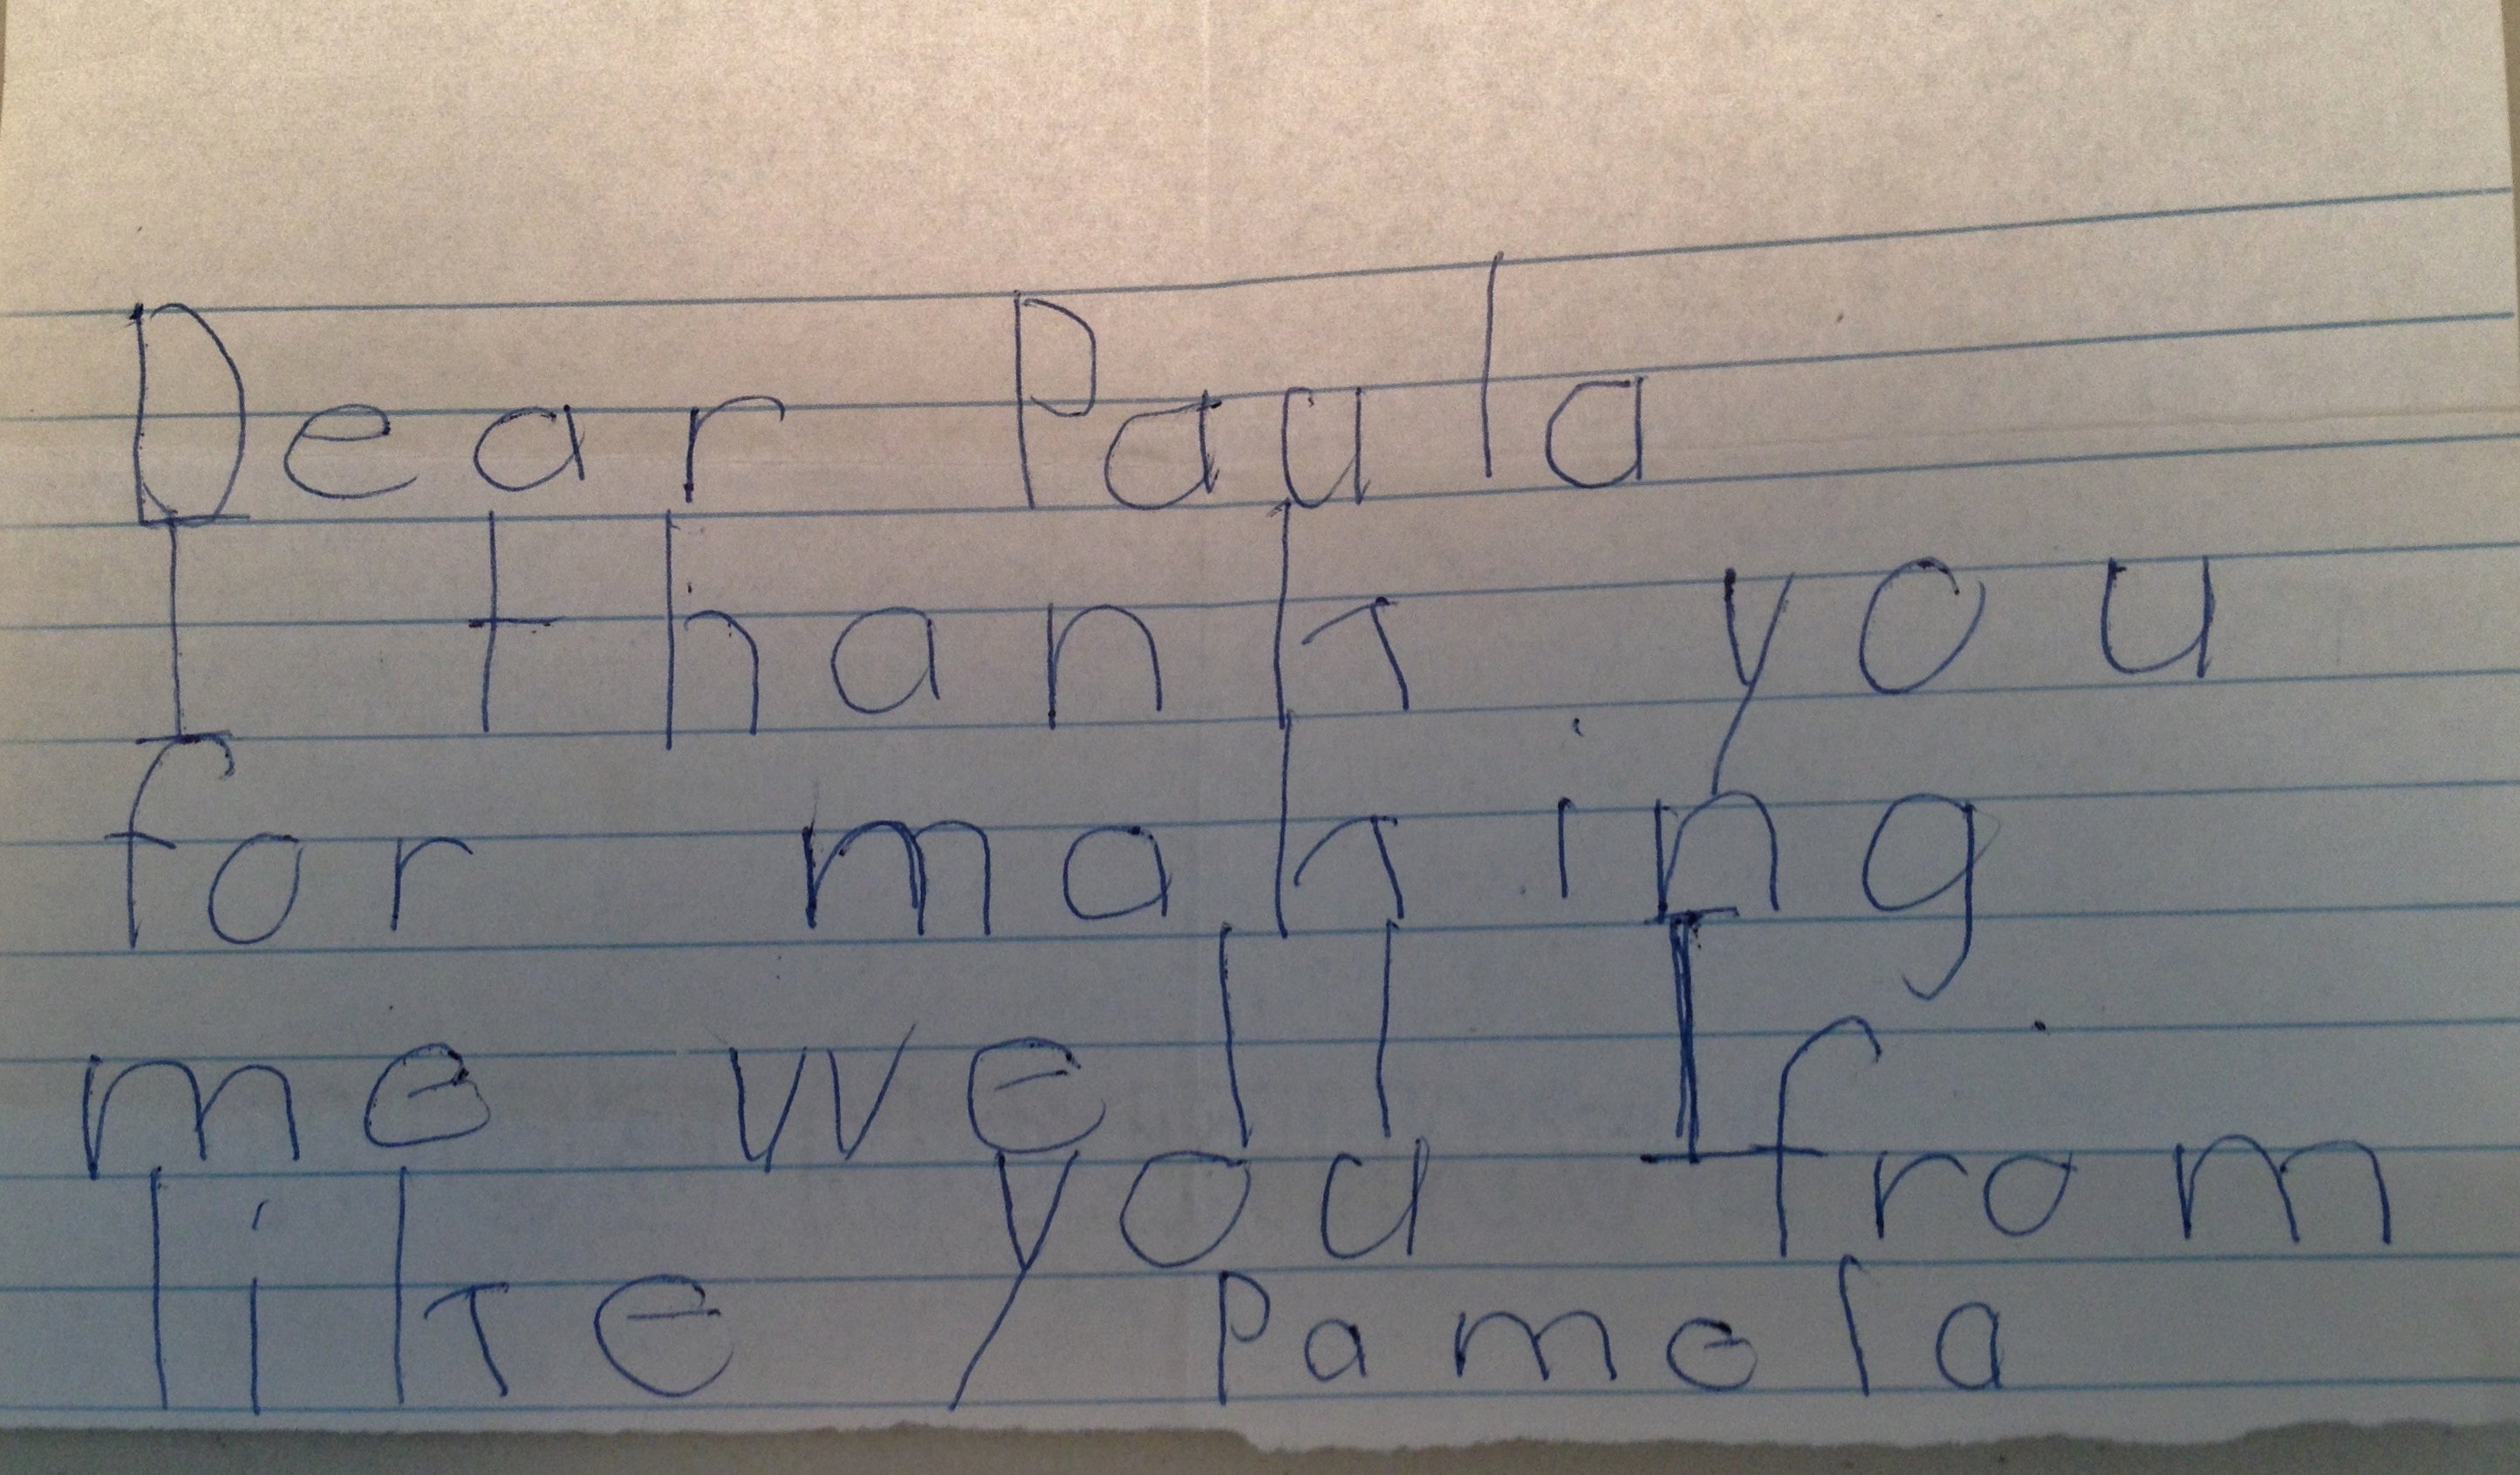 Dear Paula
I thank you
for making
me well I
like you from
Pamela